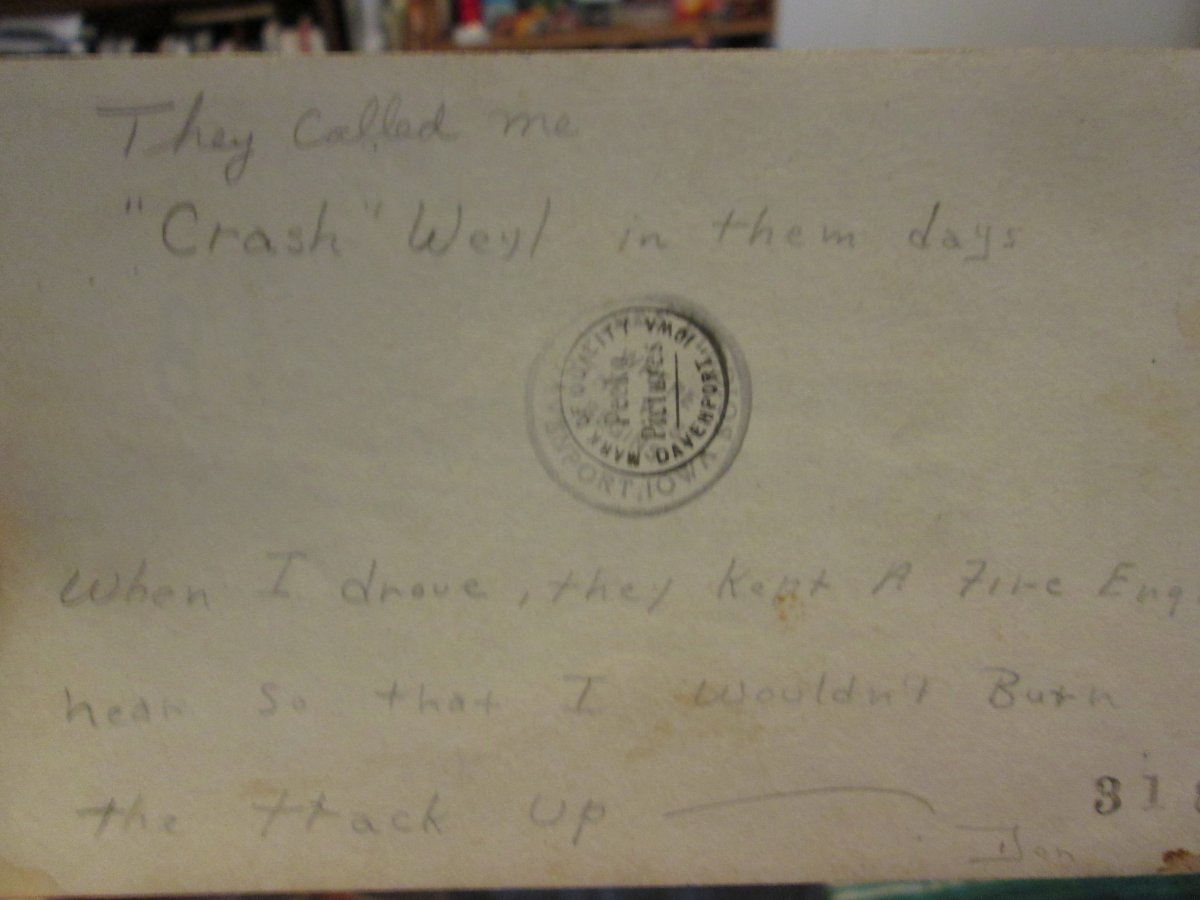 They Called me
"Crash" Weyl in them days
MARK OF QUALITY
DAVENPORT, IOWA
Pictures
DAVENPORT, IOWA
When I drove, they Kept A Fire Eng
near so that I wouldn't Burn
the track up
318
Don